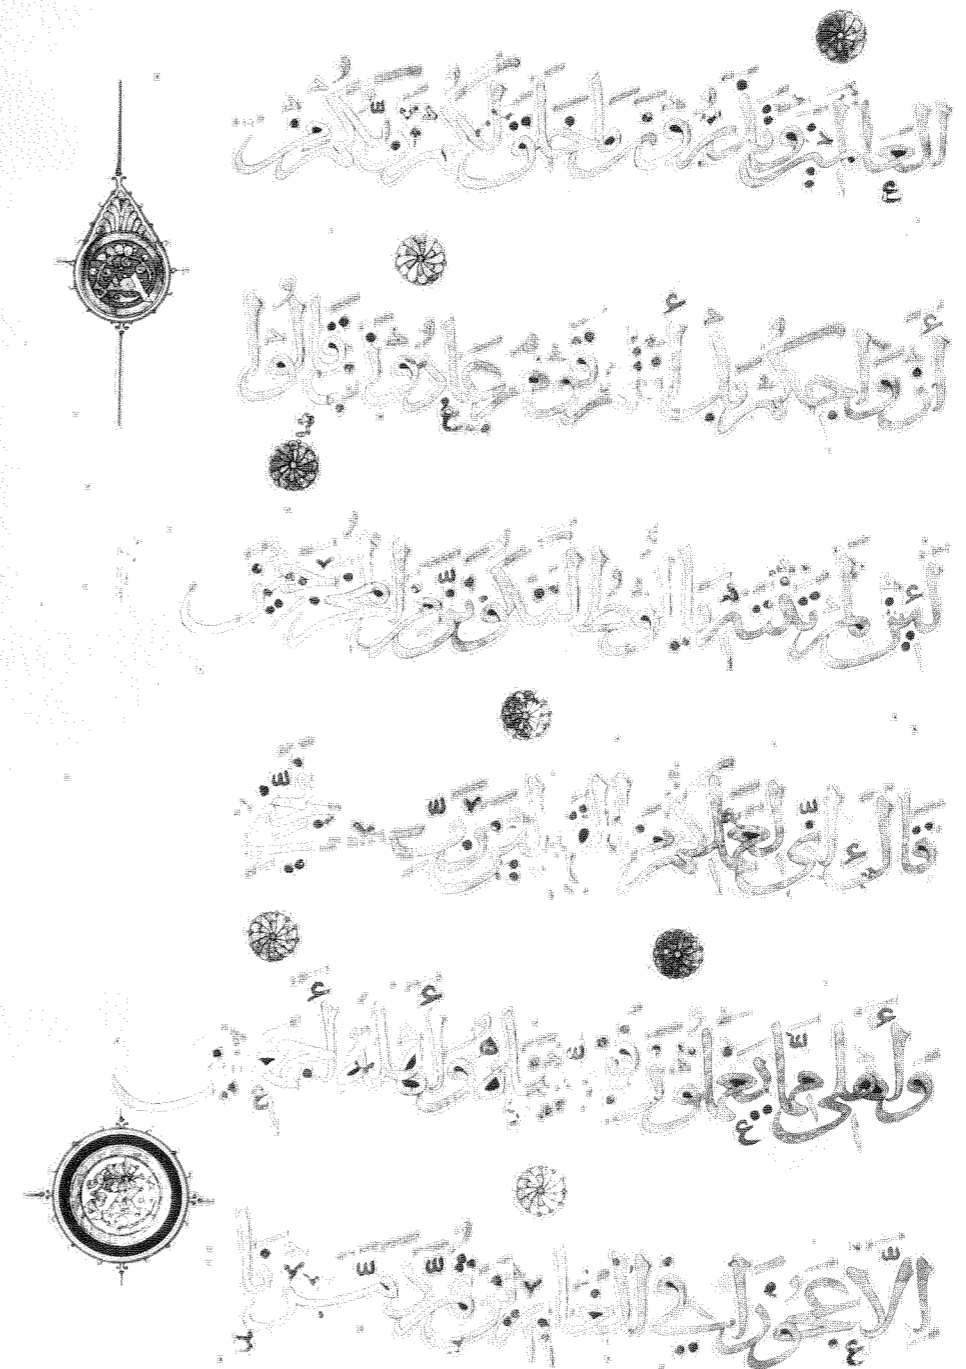 الْعَالَمِينَ وَتَذَرُونَ مَا خَلَقَ لَكُمْ رَبُّكُمْ مِنْ
أَزْوَاجِكُمْ بَلْ أَنْتُمْ قَوْمٌ عَادُونَ قَالُوا
لَئِنْ لَمْ تَنْتَهِ يَا لُوطُ لَتَكُونَنَّ مِنَ الْمُخْرَجِينَ
قَالَ إِنِّي لِعَمَلِكُمْ مِنَ الْقَالِينَ رَبِّ نَجِّنِي
وَأَهْلِي مِمَّا يَعْمَلُونَ فَنَجَّيْنَاهُ وَأَهْلَهُ أَجْمَعِينَ
إِلَّا عَجُوزًا فِي الْغَابِرِينَ ثُمَّ دَمَّرْنَا